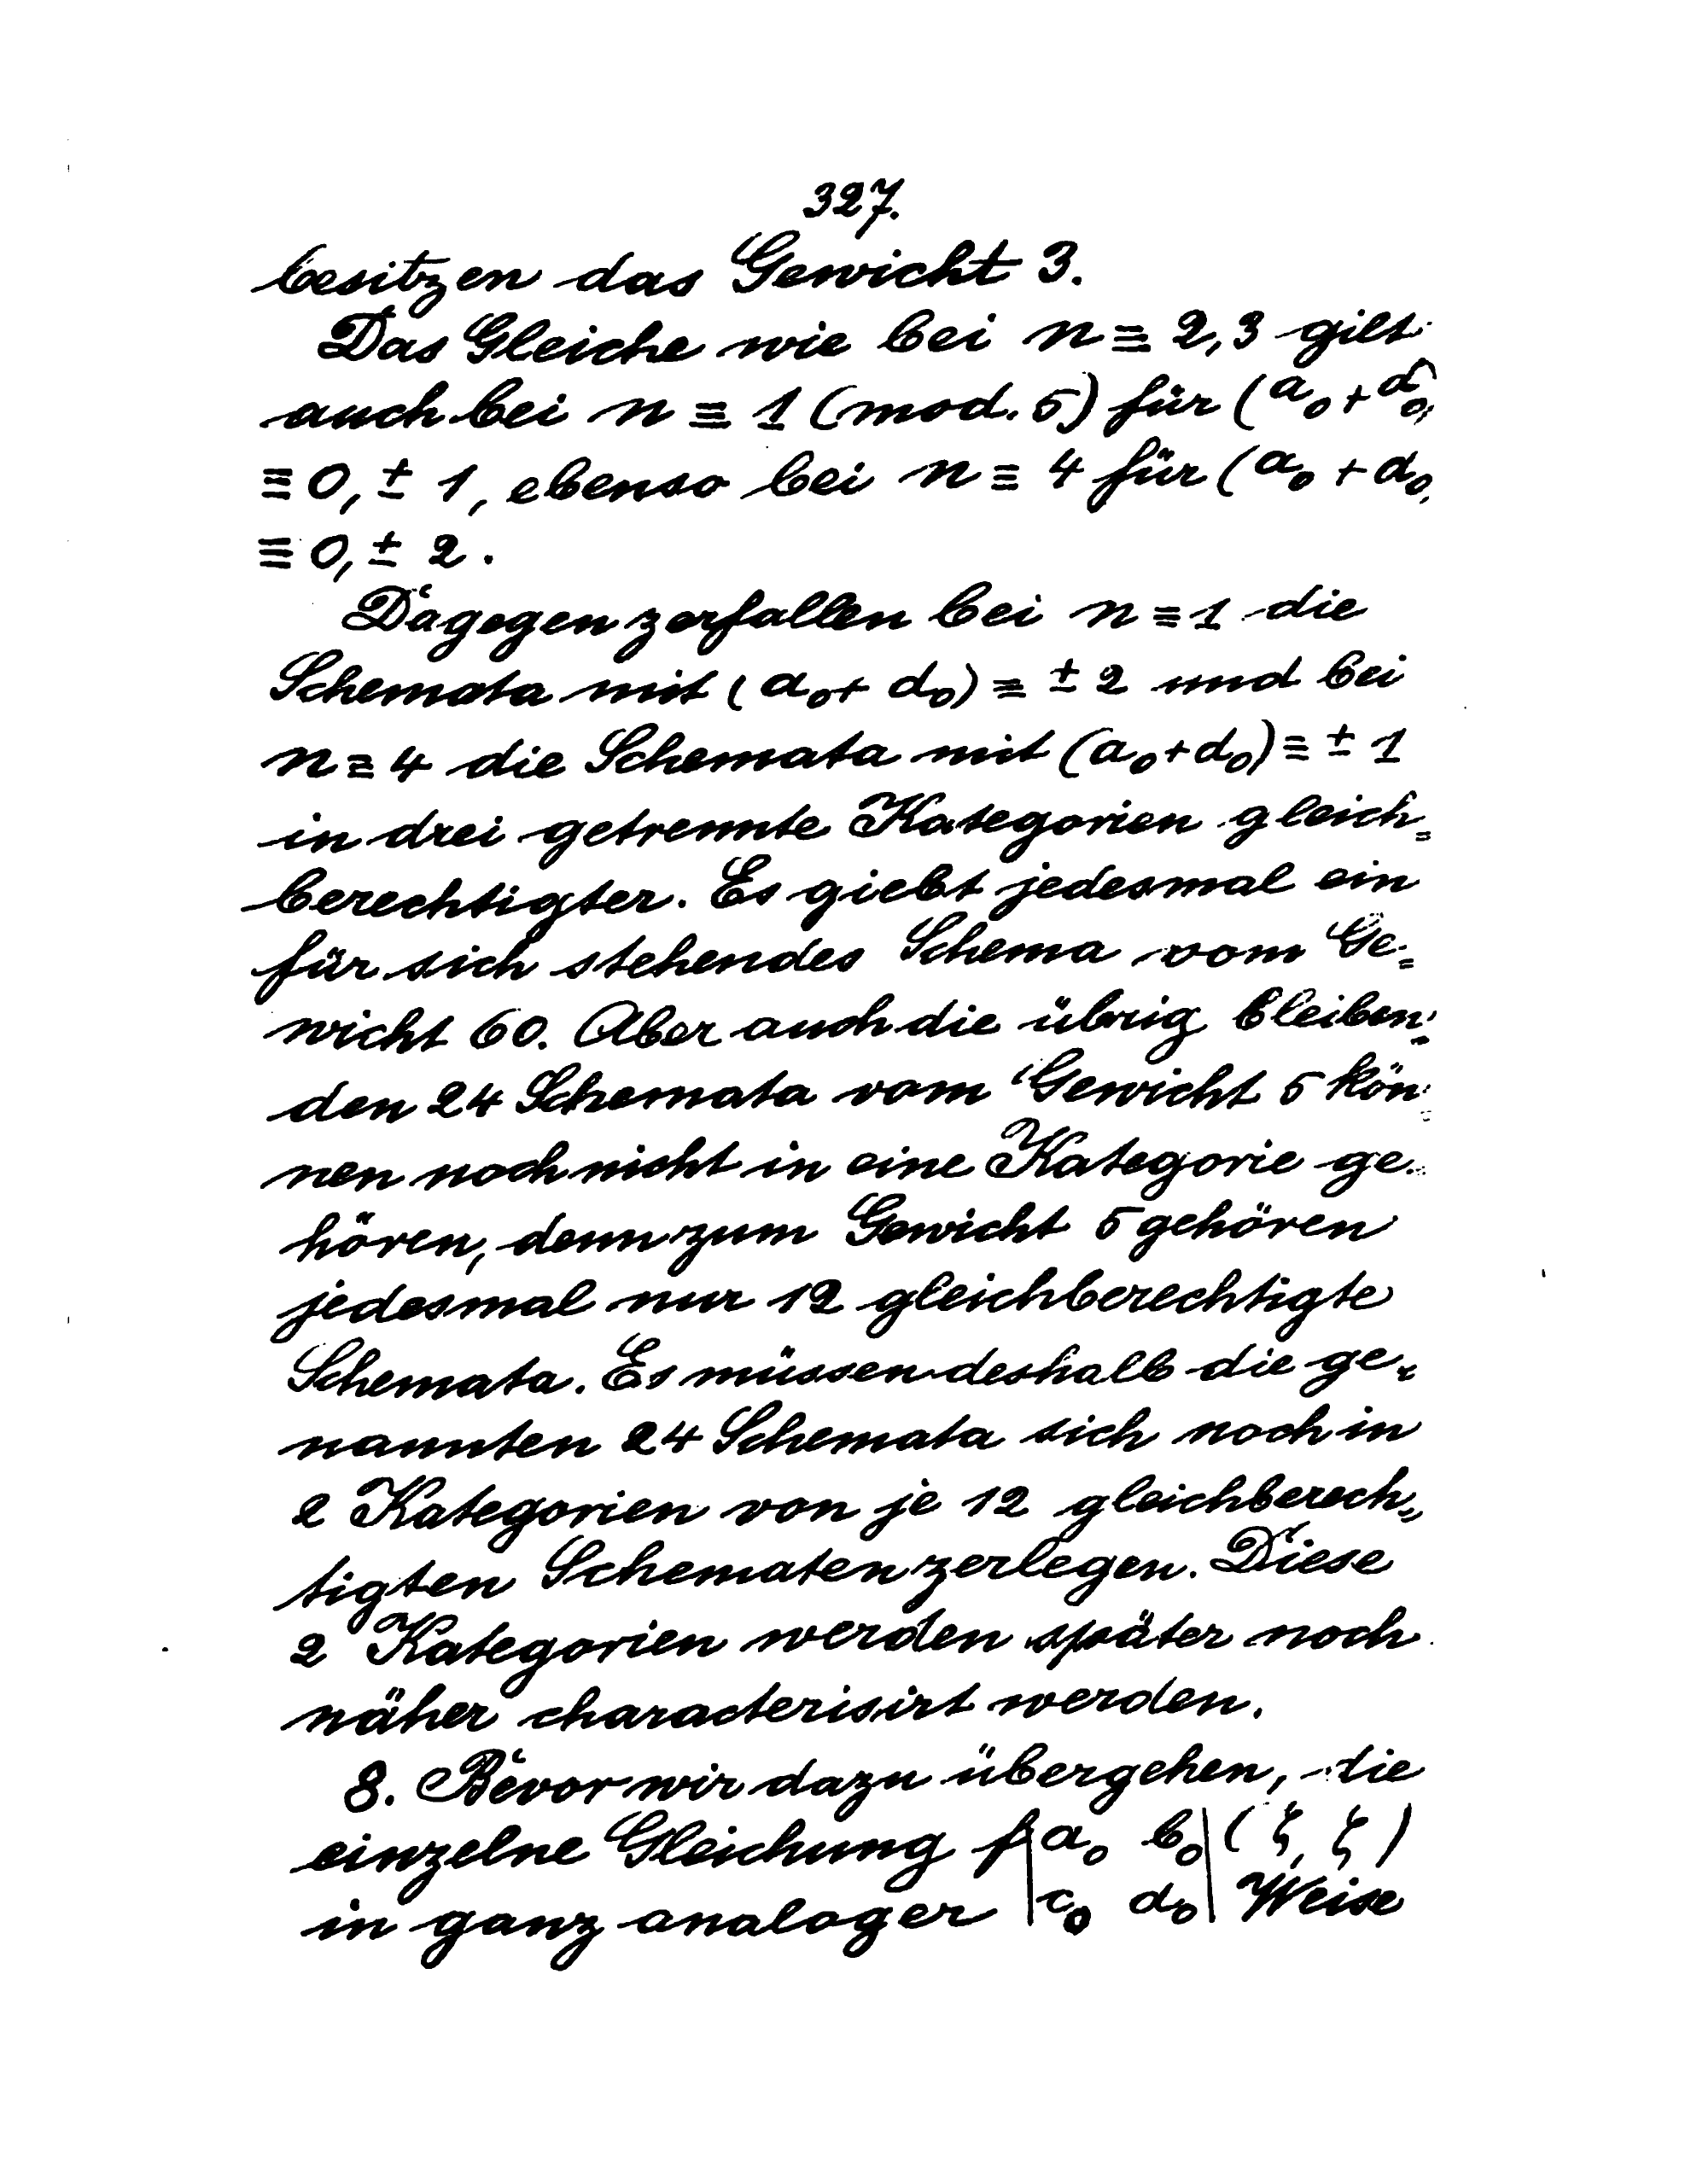 327.
besitzen das Gewicht 3.
Das Gleiche wie bei n ≡ 2,3 gilt
auch bei n ≡ 1 (mod. 5) für (a₀ + d₀)
≡ 0, ± 1, ebenso bei n ≡ 4 für (a₀ + d₀)
≡ 0, ± 2.
Dagegen zerfallen bei n ≡ 1 die
Schemata mit (a₀ + d₀) ≡ ± 2 und bei
n ≡ 4 die Schemata mit (a₀ + d₀) ≡ ± 1
in drei getrennte Kategorien gleich=
berechtigter. Es giebt jedesmal ein
für sich stehendes Schema vom Ge=
wicht 60. Aber auch die übrig bleiben=
den 24 Schemata vom Gewicht 5 kön=
nen noch nicht in eine Kategorie ge=
hören, denn zum Gewicht 5 gehören
jedesmal nur 12 gleichberechtigte
Schemata. Es müssen deshalb die ge=
nannten 24 Schemata sich noch in
2 Kategorien von je 12 gleichberech=
tigten Schematen zerlegen. Diese
2 Kategorien werden später noch
näher characterisirt werden.
8. Bevor wir dazu übergehen, die
einzelne Gleichung f |a₀ b₀| (ζ, ζ)
in ganz analoger |c₀ d₀| Weise